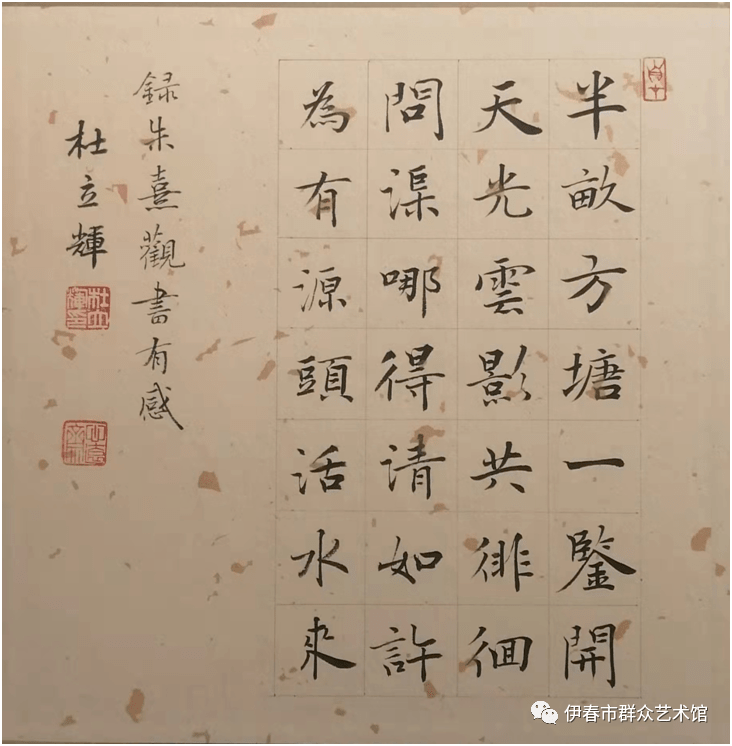 半畝方塘一鑒開
天光雲影共徘徊
問渠哪得请如許
為有源頭活水來
録朱熹觀書有感
杜立輝
伊春市群众艺术馆